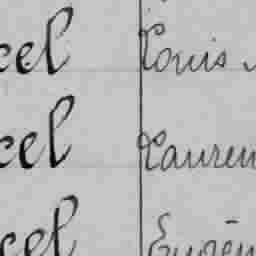 cel Louis
cel Lauren
cel Eugèn